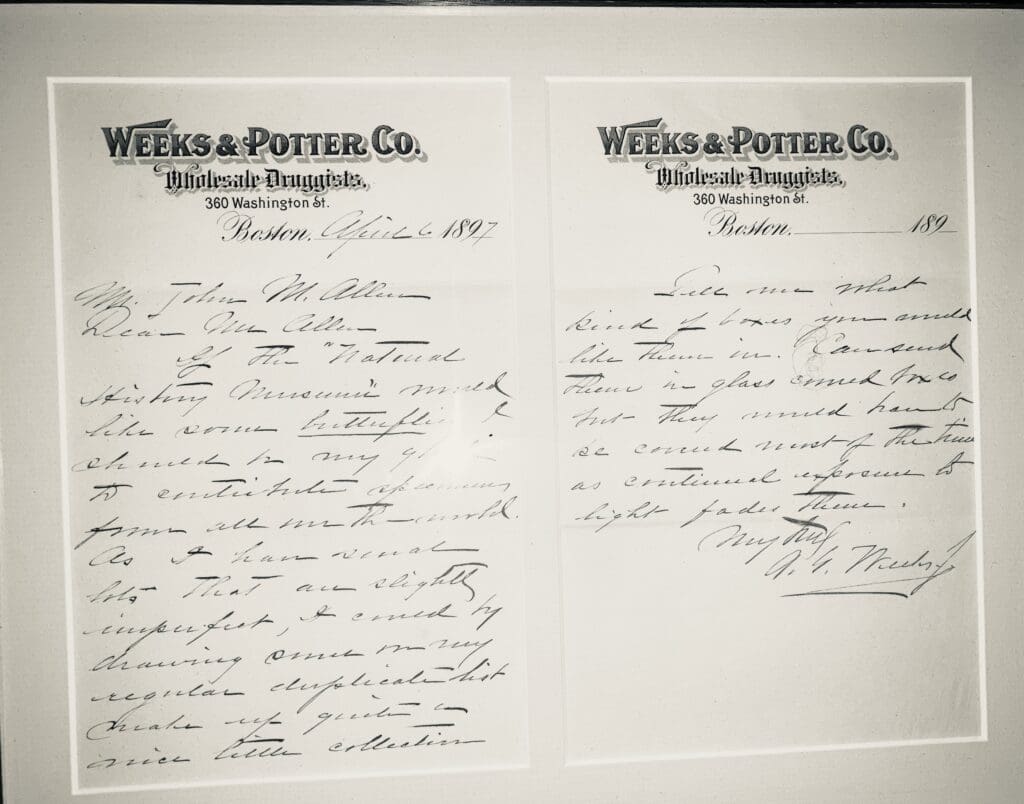 WEEKS & POTTER CO.
Wholesale Druggists,
360 Washington St.
Boston, April 6 1897
Mr. John M. Allen
Dear Mr Allen
If the "Natural
History Museum" would
like some butterflies I
should be my
to contribute specimens
from all over the world.
As I have several
lots that are slightly
imperfect, I could by
drawing some on my
regular duplicate list
make up quite a
nice little collection
WEEKS & POTTER CO.
Wholesale Druggists,
360 Washington St.
Boston, 189
Tell me what
kind of boxes you would
like them in. Can send
them in glass covered boxes
but they would have to
be covered most of the time
as continual exposure to
light fades them.
truly
A. G. Weeks Jr